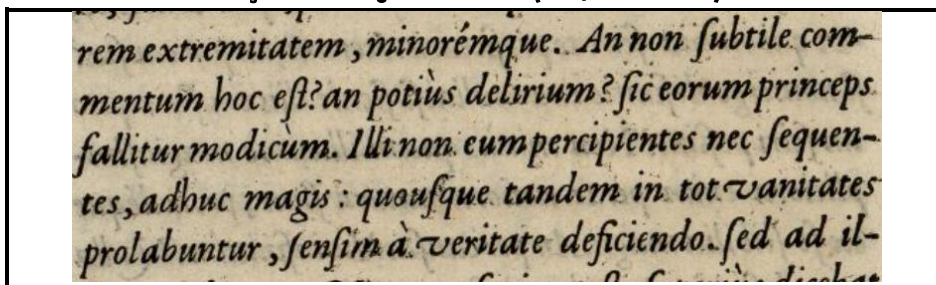 rem extremitatem, minorémque. An non ſubtile com-
mentum hoc eſt? an potiùs delirium? ſic eorum princeps
fallitur modicùm. Illi non eum percipientes nec ſequen-
tes, adhuc magis: quouſque tandem in tot vanitates
prolabuntur, ſenſim à veritate deficiendo. ſed ad il-